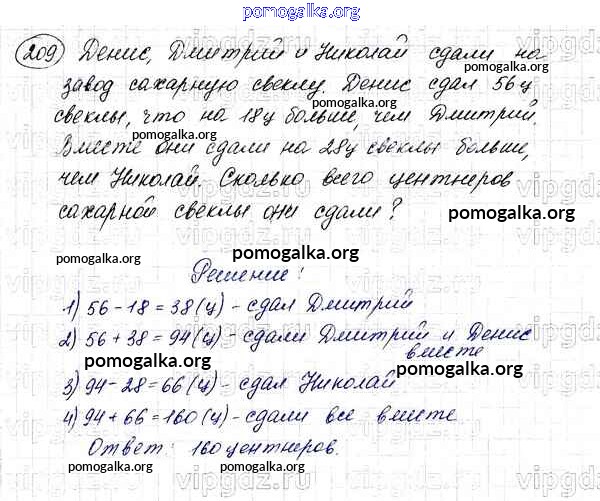 pomogalka.org
209 Денис, Дмитрий и Николай сдали на
завод сахарную свеклу. Денис сдал 56ц
pomogalka.org
свеклы, что на 18ц больше, чем Дмитрий.
pomogalka.org
Вместе они сдали на 28ц свеклы больше,
чем Николай. Сколько всего центнеров
сахарной свеклы они сдали?
pomogalka.org
pomogalka.org
Решение:
1) 56 - 18 = 38 (ц) - сдал Дмитрий
2) 56 + 38 = 94 (ц) - сдали Дмитрий и Денис
вместе
pomogalka.org
3) 94 - 28 = 66 (ц) - сдал Николай
pomogalka.org
4) 94 + 66 = 160 (ц) - сдали все вместе
Ответ: 160 центнеров.
pomogalka.org
pomogalka.org